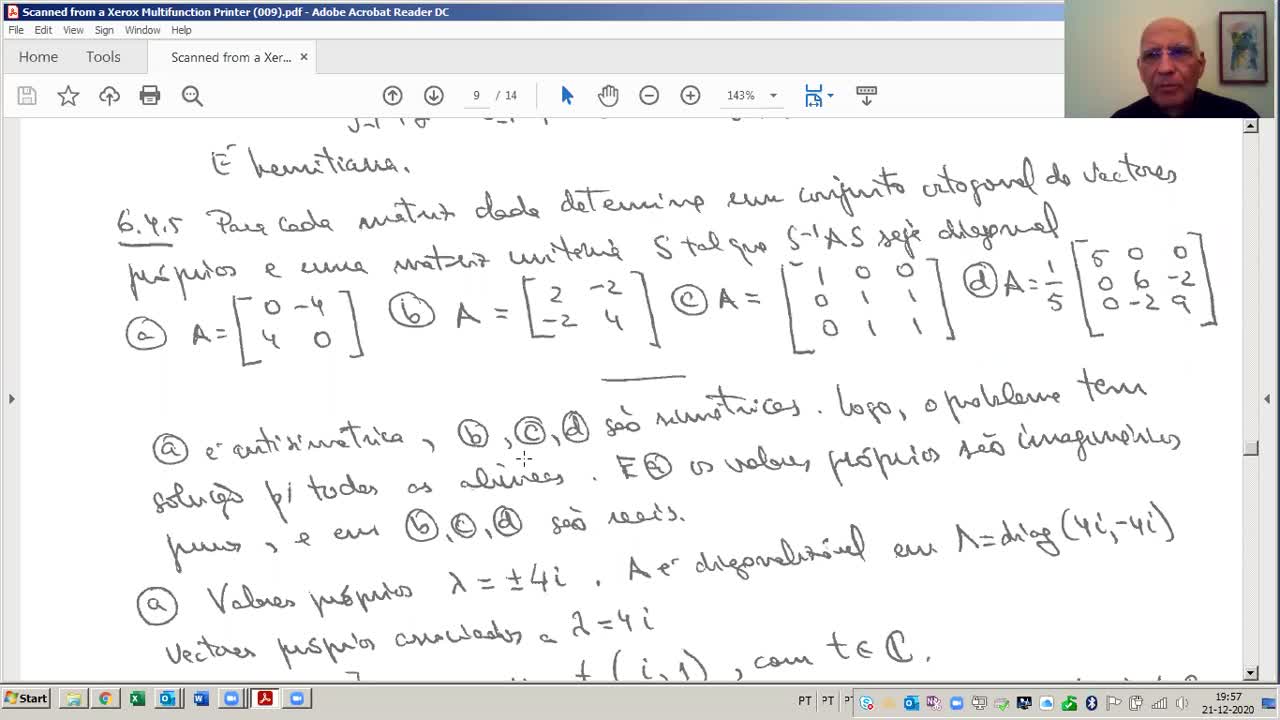 Scanned from a Xerox Multifunction Printer (009).pdf - Adobe Acrobat Reader DC
File Edit View Sign Window Help
Home Tools Scanned from a Xer... ×
9 / 14 143%
É hermitiana.
6.4.5 Para cada matriz dada determine um conjunto ortogonal de vectores
próprios e uma matriz unitária S tal que S⁻¹AS seja diagonal
(a) A = [0 -4; 4 0] (b) A = [2 -2; -2 4] (c) A = [1 0 0; 0 1 1; 0 1 1] (d) A = 1/5 [5 0 0; 0 6 -2; 0 -2 9]
(a) é antisimétrica, (b), (c), (d) são simétricas. Logo, o problema tem
solução p/ todas as alíneas. E (a) os valores próprios são imaginários
puros, e em (b), (c), (d) são reais.
(a) Valores próprios λ = ±4i. A é diagonalizável em Λ = diag(4i, -4i)
Vectores próprios associados a λ = 4i
t(i, 1), com t ∈ ℂ.
Start
PT PT
19:57
21-12-2020